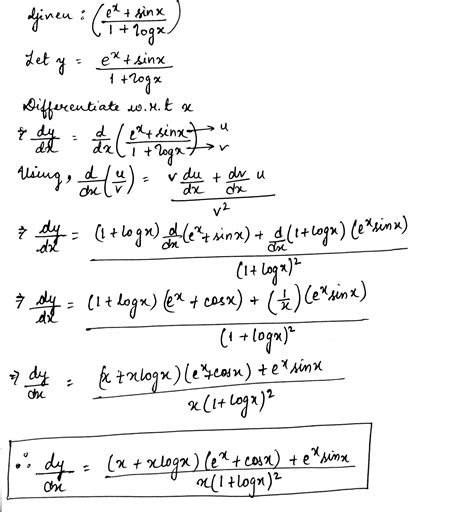 Given : (e^x + sinx / 1 + logx)
Let y = e^x + sinx / 1 + logx
Differentiate w.r.t x
⇒ dy/dx = d/dx (e^x + sinx / 1 + logx) → u → v
Using, d/dx (u/v) = v du/dx + dv/dx u / v^2
⇒ dy/dx = (1 + logx) d/dx (e^x + sinx) + d/dx (1 + logx) (e^x sinx) / (1 + logx)^2
⇒ dy/dx = (1 + logx) (e^x + cosx) + (1/x) (e^x sinx) / (1 + logx)^2
⇒ dy/dx = (x + xlogx) (e^x + cosx) + e^x sinx / x(1 + logx)^2
∴ dy/dx = (x + xlogx) (e^x + cosx) + e^x sinx / x(1 + logx)^2